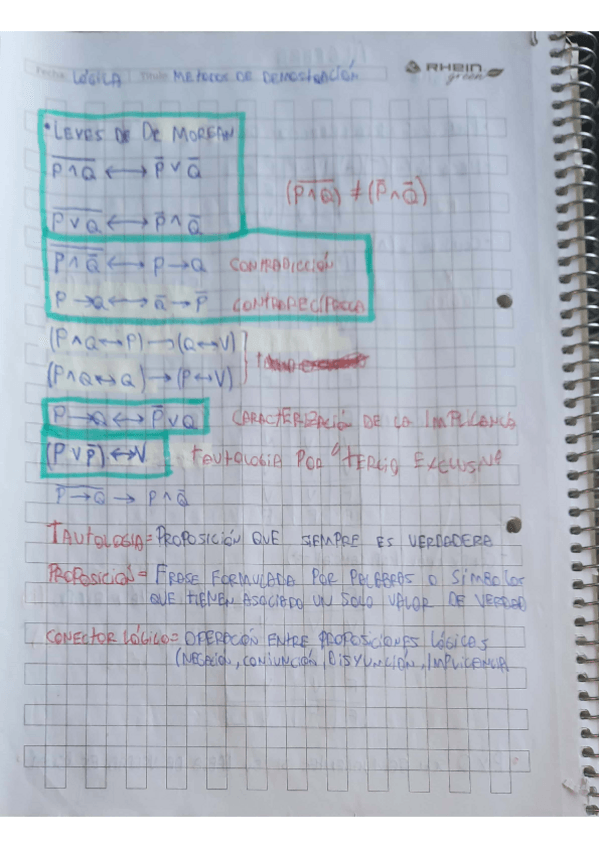 Fecha LÓGICA Título METODOS DE DEMOSTRACIÓN
RHEIN
green
• LEYES DE DE MORGAN
P̅ ̅∧̅ ̅Q̅ ⟷ P̅ ∨ Q̅
(P̅ ̅∧̅ ̅Q̅) ≠ (P̅ ∧ Q̅)
P̅ ̅∨̅ ̅Q̅ ⟷ P̅ ∧ Q̅
P ∧ Q̅ ⟷ P → Q CONTRADICCIÓN
P → Q ⟷ Q̅ → P̅ CONTRARECÍPROCA
(P ∧ Q ↔ P) → (Q ↔ V)
(P ∧ Q ↔ Q) → (P ↔ V)
P → Q ⟷ P̅ ∨ Q CARACTERIZACIÓN DE LA IMPLICANCIA
(P ∨ P̅) ↔ V TAUTOLOGIA POR "TERCIO EXCLUSIVO
P̅ ̅→̅ ̅Q̅ → P ∧ Q̅
TAUTOLOGIA = PROPOSICIÓN QUE SIEMPRE ES VERDADERA
PROPOSICIÓN = FRASE FORMULADA POR PALABRAS O SÍMBOLOS
QUE TIENEN ASOCIADO UN SOLO VALOR DE VERDAD
CONECTOR LÓGICO = OPERACIÓN ENTRE PROPOSICIONES LÓGICAS
(NEGACIÓN, CONJUNCIÓN, DISYUNCIÓN, IMPLICANCIA